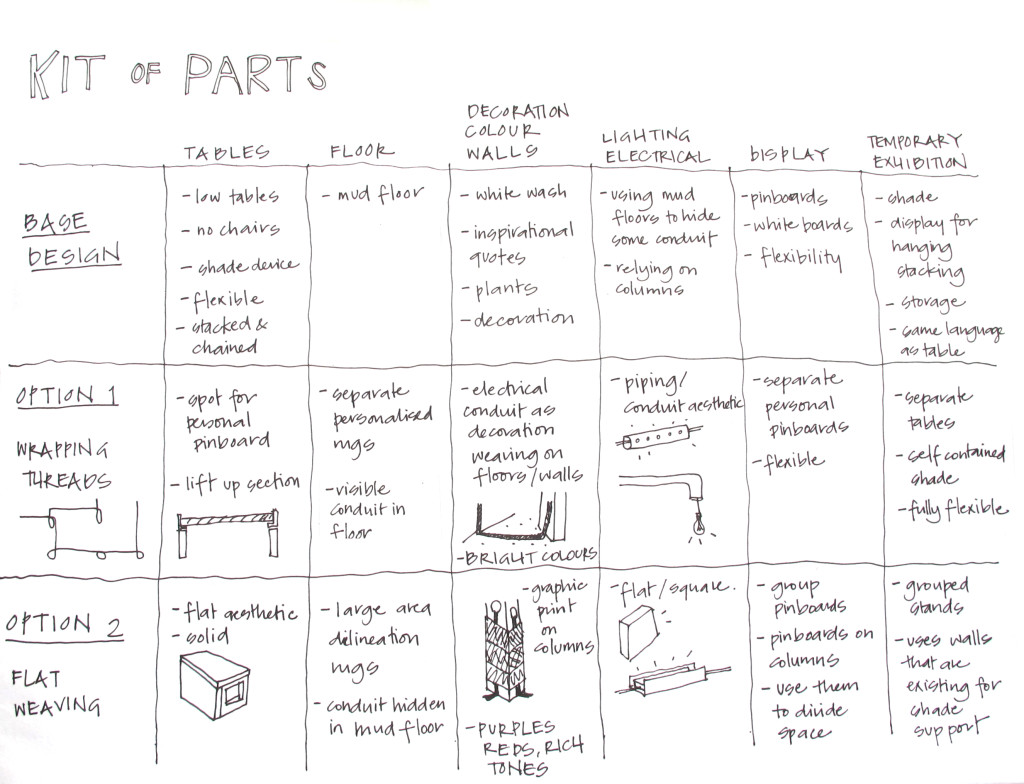 KIT OF PARTS
TABLES
FLOOR
DECORATION
COLOUR
WALLS
LIGHTING
ELECTRICAL
DISPLAY
TEMPORARY
EXHIBITION
BASE
DESIGN
- low tables
- no chairs
- shade device
- flexible
- stacked &
chained
- mud floor
- white wash
- inspirational
quotes
- plants
- decoration
- using mud
floors to hide
some conduit
- relying on
columns
- pinboards
- white boards
- flexibility
- shade
- display for
hanging
stacking
- storage
- same language
as table
OPTION 1
WRAPPING
THREADS
- spot for
personal
pinboard
- lift up section
- separate
personalised
rugs
- visible
conduit in
floor
- electrical
conduit as
decoration
weaving on
floors/walls
- BRIGHT COLOURS
- piping/
conduit aesthetic
- separate
personal
pinboards
- flexible
- separate
tables
- self contained
shade
- fully flexible
OPTION 2
FLAT
WEAVING
- flat aesthetic
- solid
- large area
delineation
rugs
- conduit hidden
in mud floor
- graphic
print
on
columns
- PURPLES
REDS, RICH
TONES
- flat/square.
- group
pinboards
- pinboards on
columns
- use them
to divide
space
- grouped
stands
- uses walls
that are
existing for
shade
support